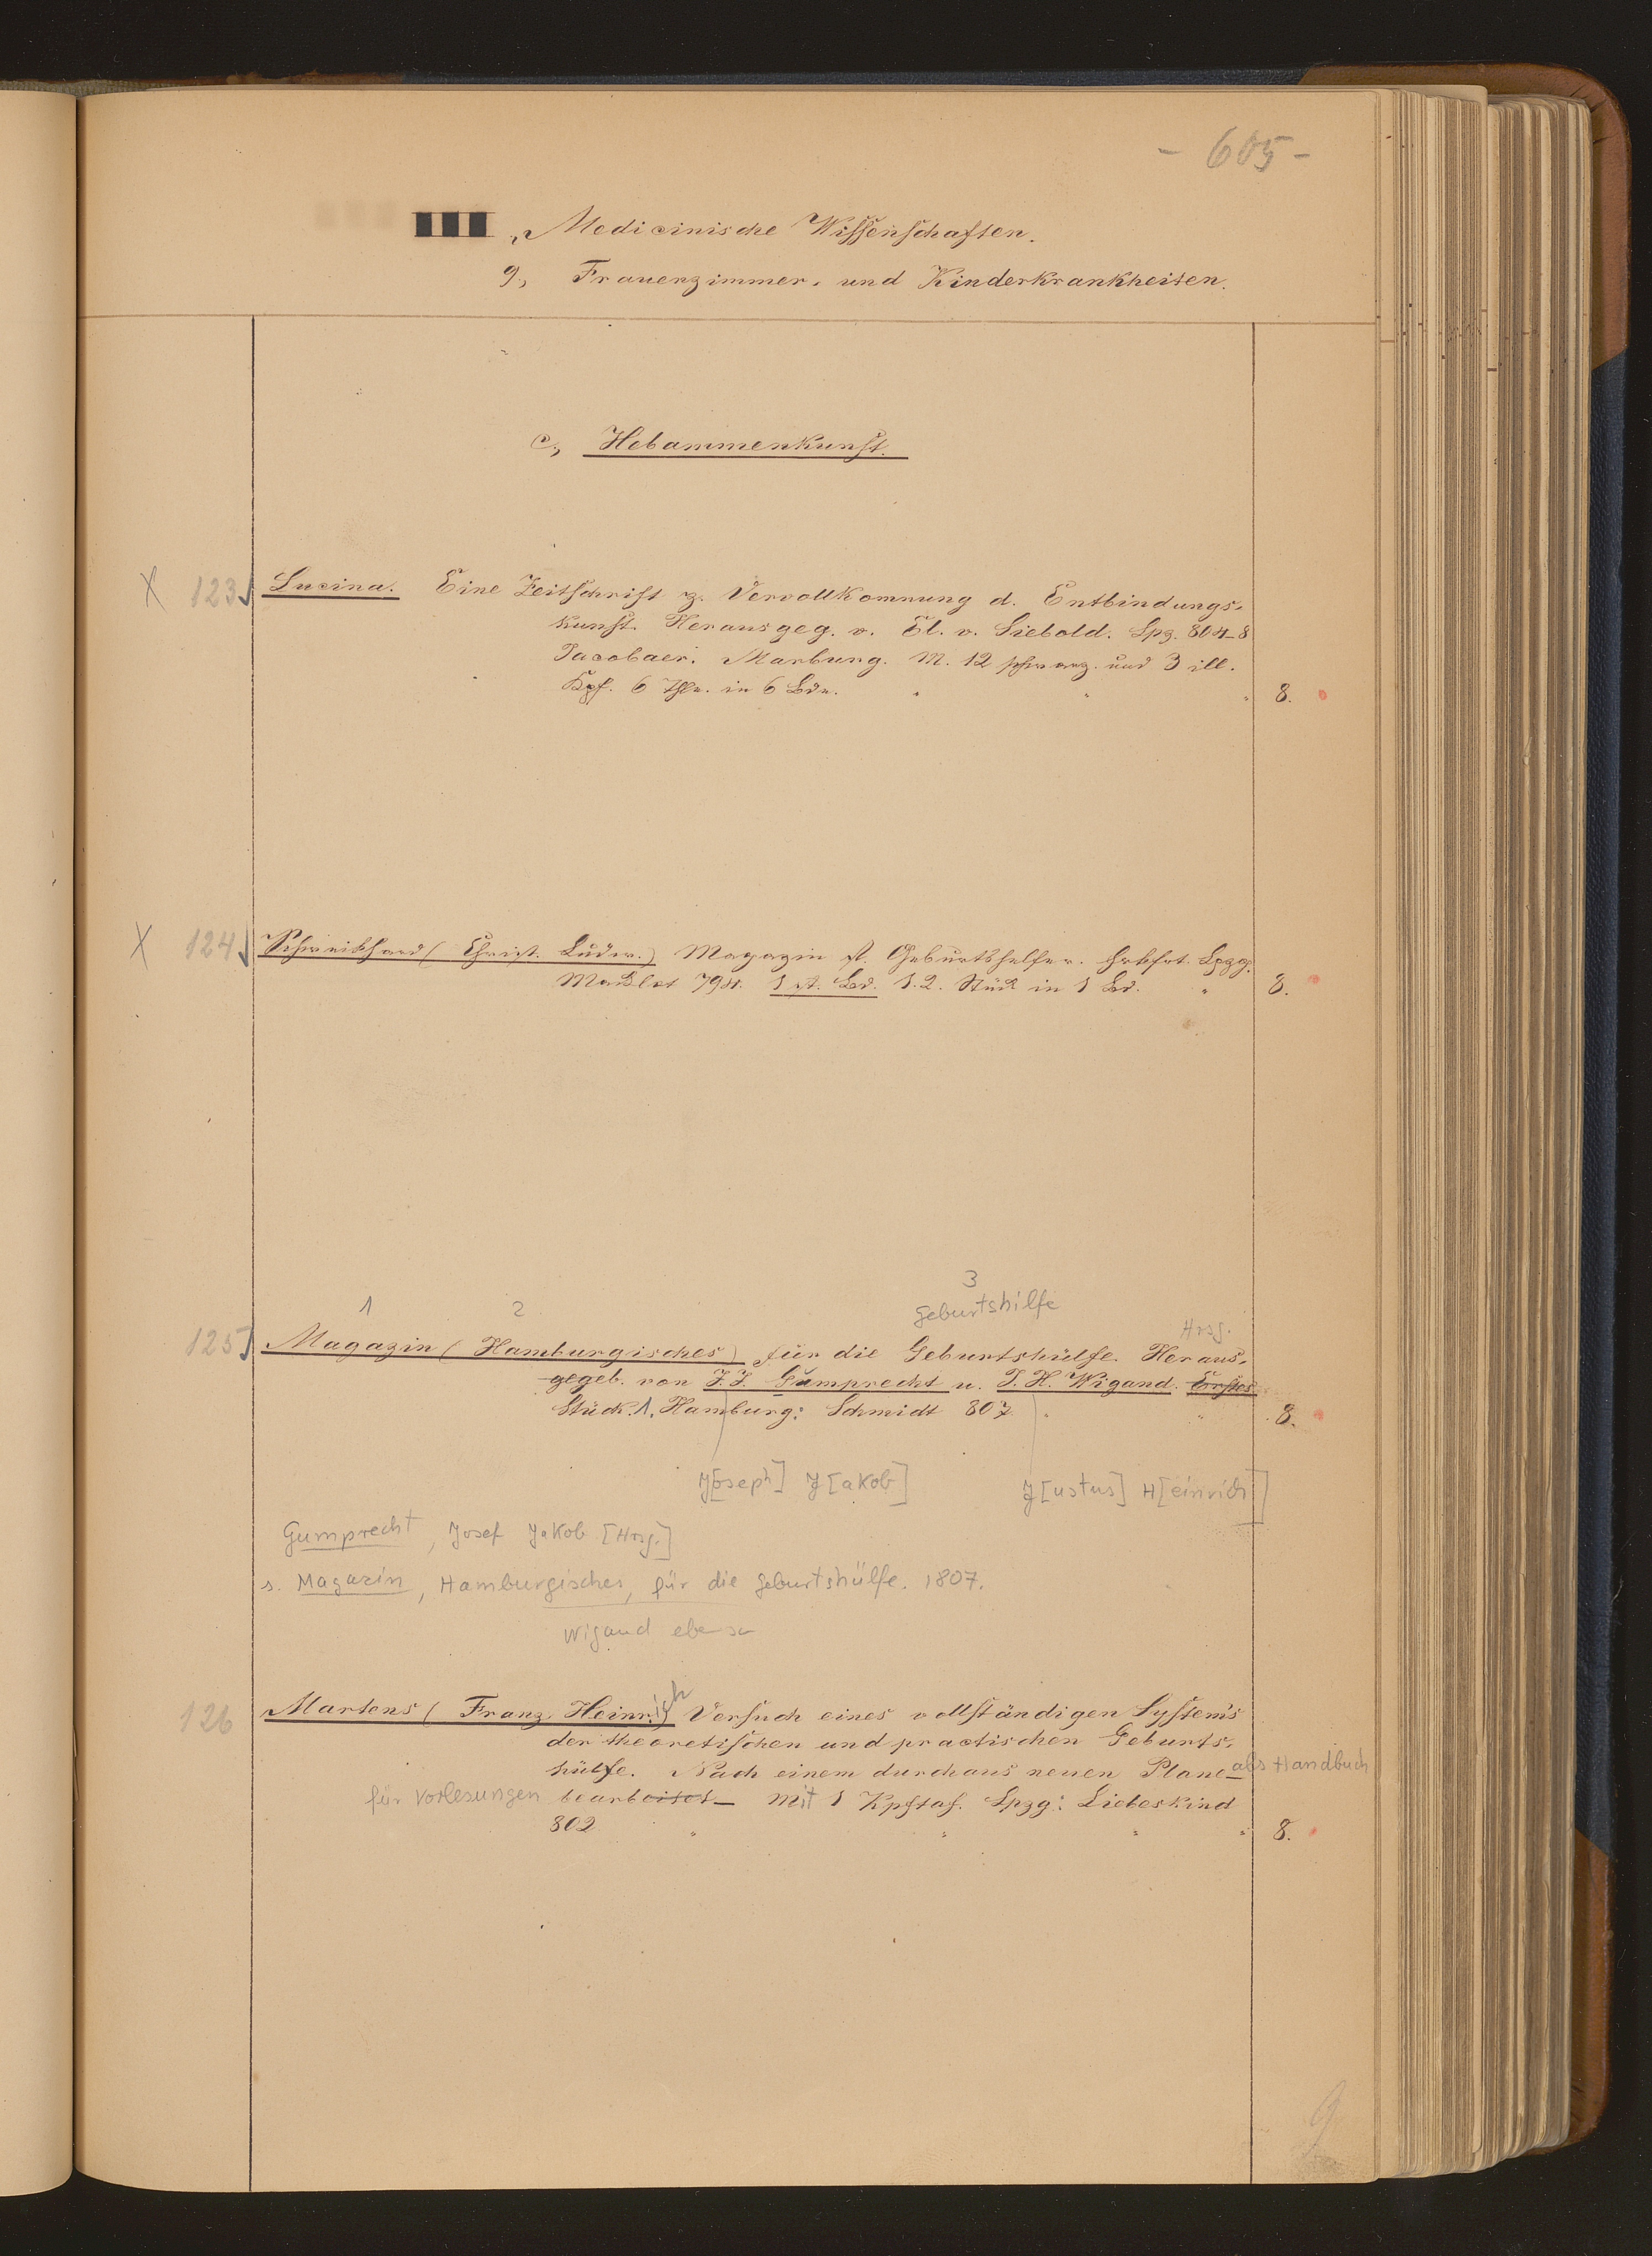 - 605 -
Medicinische Wissenschaften.
9, Frauenzimmer- und Kinderkrankheiten.
c, Hebammenkunst.
X 123 Lucina. Eine Zeitschrift z. Vervollkomnung d. Entbindungs-
kunst. Herausgeg. v. El. v. Siebold. Lpz. 804-8
Jacobaer. Marburg. M. 12 schwarz. und 3 ill.
Kpf. 6 Thle. in 6 Bdn. " " " 8.
X 124 Schweikhard (Christ. Ludw.) Magazin f. Geburtshelfer. Frkfrt. Lpzg.
Macklot 794. 1 st. Bd. 1.2. Stück in 1 Bd. " 8.
1 2 3
Geburtshilfe
Hrsg.
125 Magazin (Hamburgisches) für die Geburtshülfe. Heraus-
gegeb. von J. J. Gumprecht u. J. H. Wigand. Erstes
Stück. 1, Hamburg: Schmidt 807. " " 8.
J[oseph] J[akob] J[ustus] H[einrich]
Gumprecht, Josef Jakob [Hrsg.]
s. Magazin, Hamburgisches, für die Geburtshülfe. 1807.
Wigand ebenso
126 Martens (Franz Heinrich) Versuch eines vollständigen System's
der theoretischen und practischen Geburts-
hülfe. Nach einem durchaus neuen Plane als Handbuch
für Vorlesungen bearbeitet - Mit 1 Kpftaf. Lpzg: Liebeskind
802 " " " " 8.
9